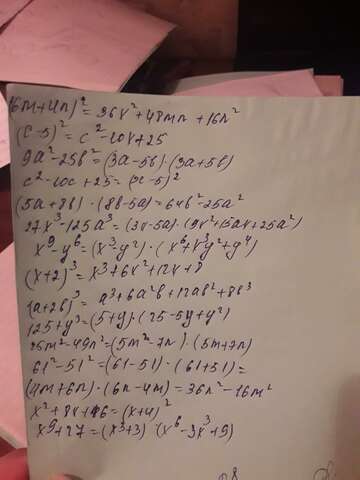 (6m+4n)² = 36x²+48mn+16n²
(c-5)² = c²-10x+25
9a²-25b²=(3a-5b)·(3a+5b)
c²-10c+25=(x-5)²
(5a+8b)·(8b-5a)=64b²-25a²
27x³-125a³=(3x-5a)·(9x²+15ax+25a²)
x⁹-y⁶=(x³-y²)·(x⁶+x³y²+y⁴)
(x+2)³=x³+6x²+12x+8
(a+2b)³=a³+6a²b+12ab²+8b³
125+y³=(5+y)·(25-5y+y²)
25m²-49n²=(5m-7n)·(5m+7n)
61²-51²=(61-51)·(61+51)=
(4m+6n)·(6n-4m)=36n²-16m²
x²+8x+16=(x+4)²
x⁹+27=(x³+3)·(x⁶-3x³+9)